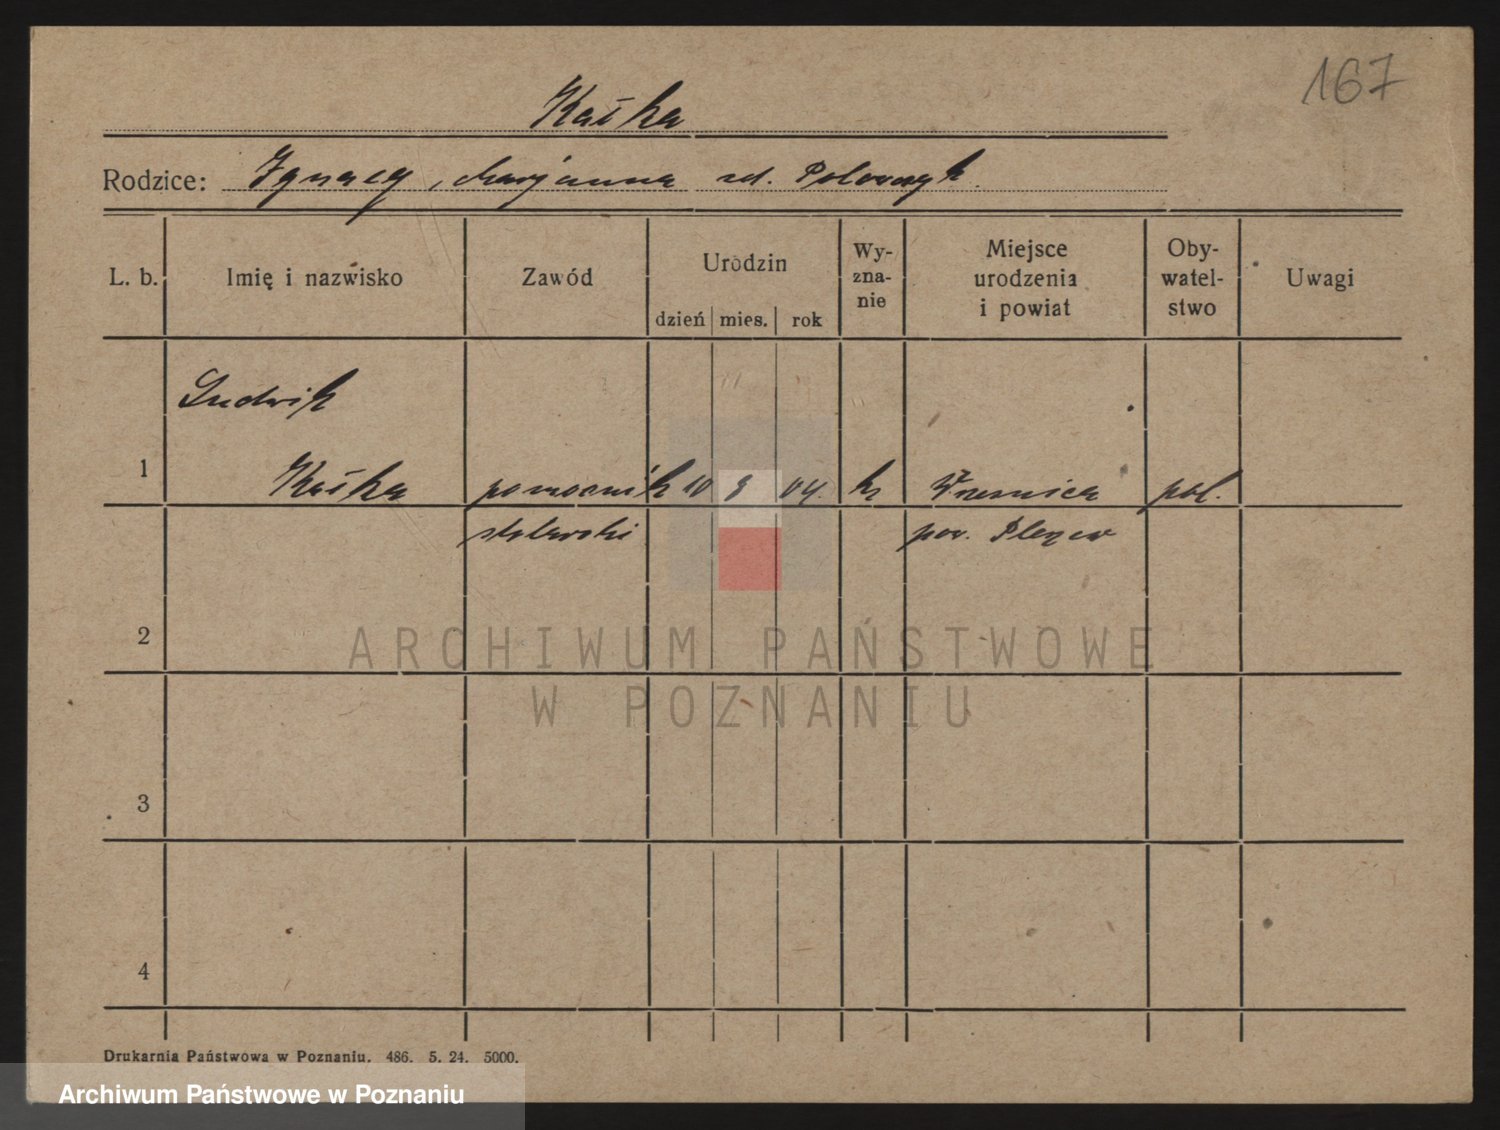 167
Kaśka
Rodzice: Ignacy, Marjanna zd.
L. b. Imię i nazwisko Zawód Urodzin dzień mies. rok Wy-zna-nie Miejsce urodzenia i powiat Oby-watel-stwo Uwagi
Ludwik
1 Kaśka pomocnik 10 8 04. kt pol.
stolarski pow. Pleszew
2
ARCHIWUM PAŃSTWOWE
W POZNANIU
3
4
Drukarnia Państwowa w Poznaniu. 486. 5. 24. 5000.
Archiwum Państwowe w Poznaniu